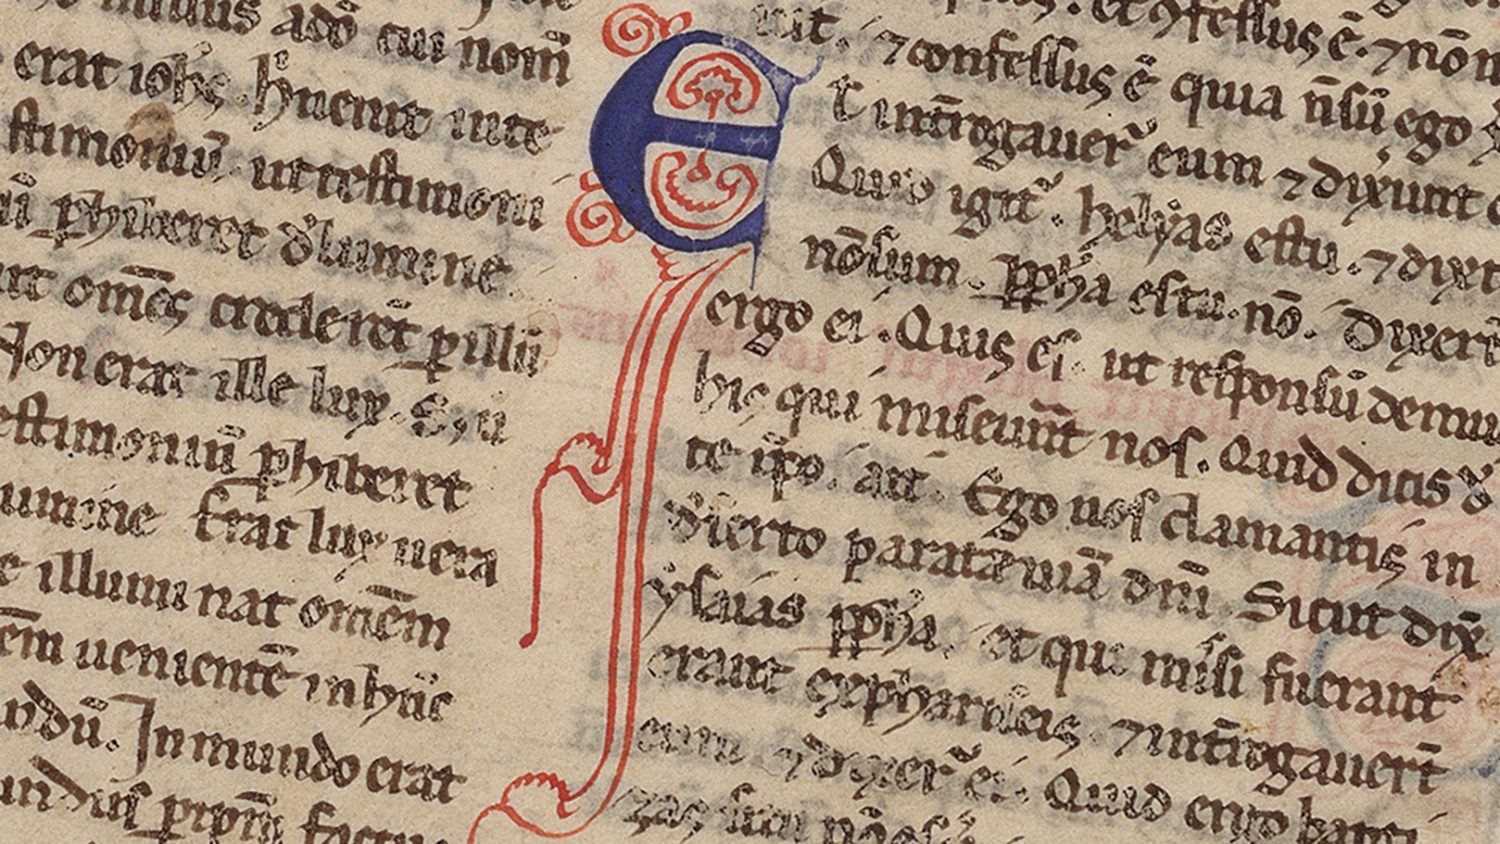 missus a dõ cui nom̃
erat ioħs. Hic uenit in te
stimoniũ ut testimoni
ũ ꝑhiberet d̾ lumine
ut om̃es crederẽt ꝑ illũ
Non erat ille lux. s; u
estimoniũ ꝑhiberet
lumine Erat lux uera
e illuminat om̃em
em uenientẽ in hũc
undũ. In mundo erat
undus ꝑ ipm̃ factu
⁊ confessus ẽ. ⁊ nõ n
uit. ⁊ confessus ẽ quia ñ sũ ego
Et int̃rogauer̃ eum ⁊ dixunt
Quid igit̃. helyas es tu. ⁊ dixt
nõ sum. ꝓpħa es tu. nõ. Dixer̃
ergo ei. Quis es. ut responsũ demus
his qui miserũt nos. Quid dicis d̾
te ip̃o. ait. Ego uox clamantis in
d̾serto paratẽ uiã dñi. Sicut dix̃
ysaias ꝓpħa. et qui missi fuerant
erant ex phariseis. ⁊ int̃rogauer̃t
eum ⁊ dixer̃ ei. Quid ergo bapti
zas si tu nõ es